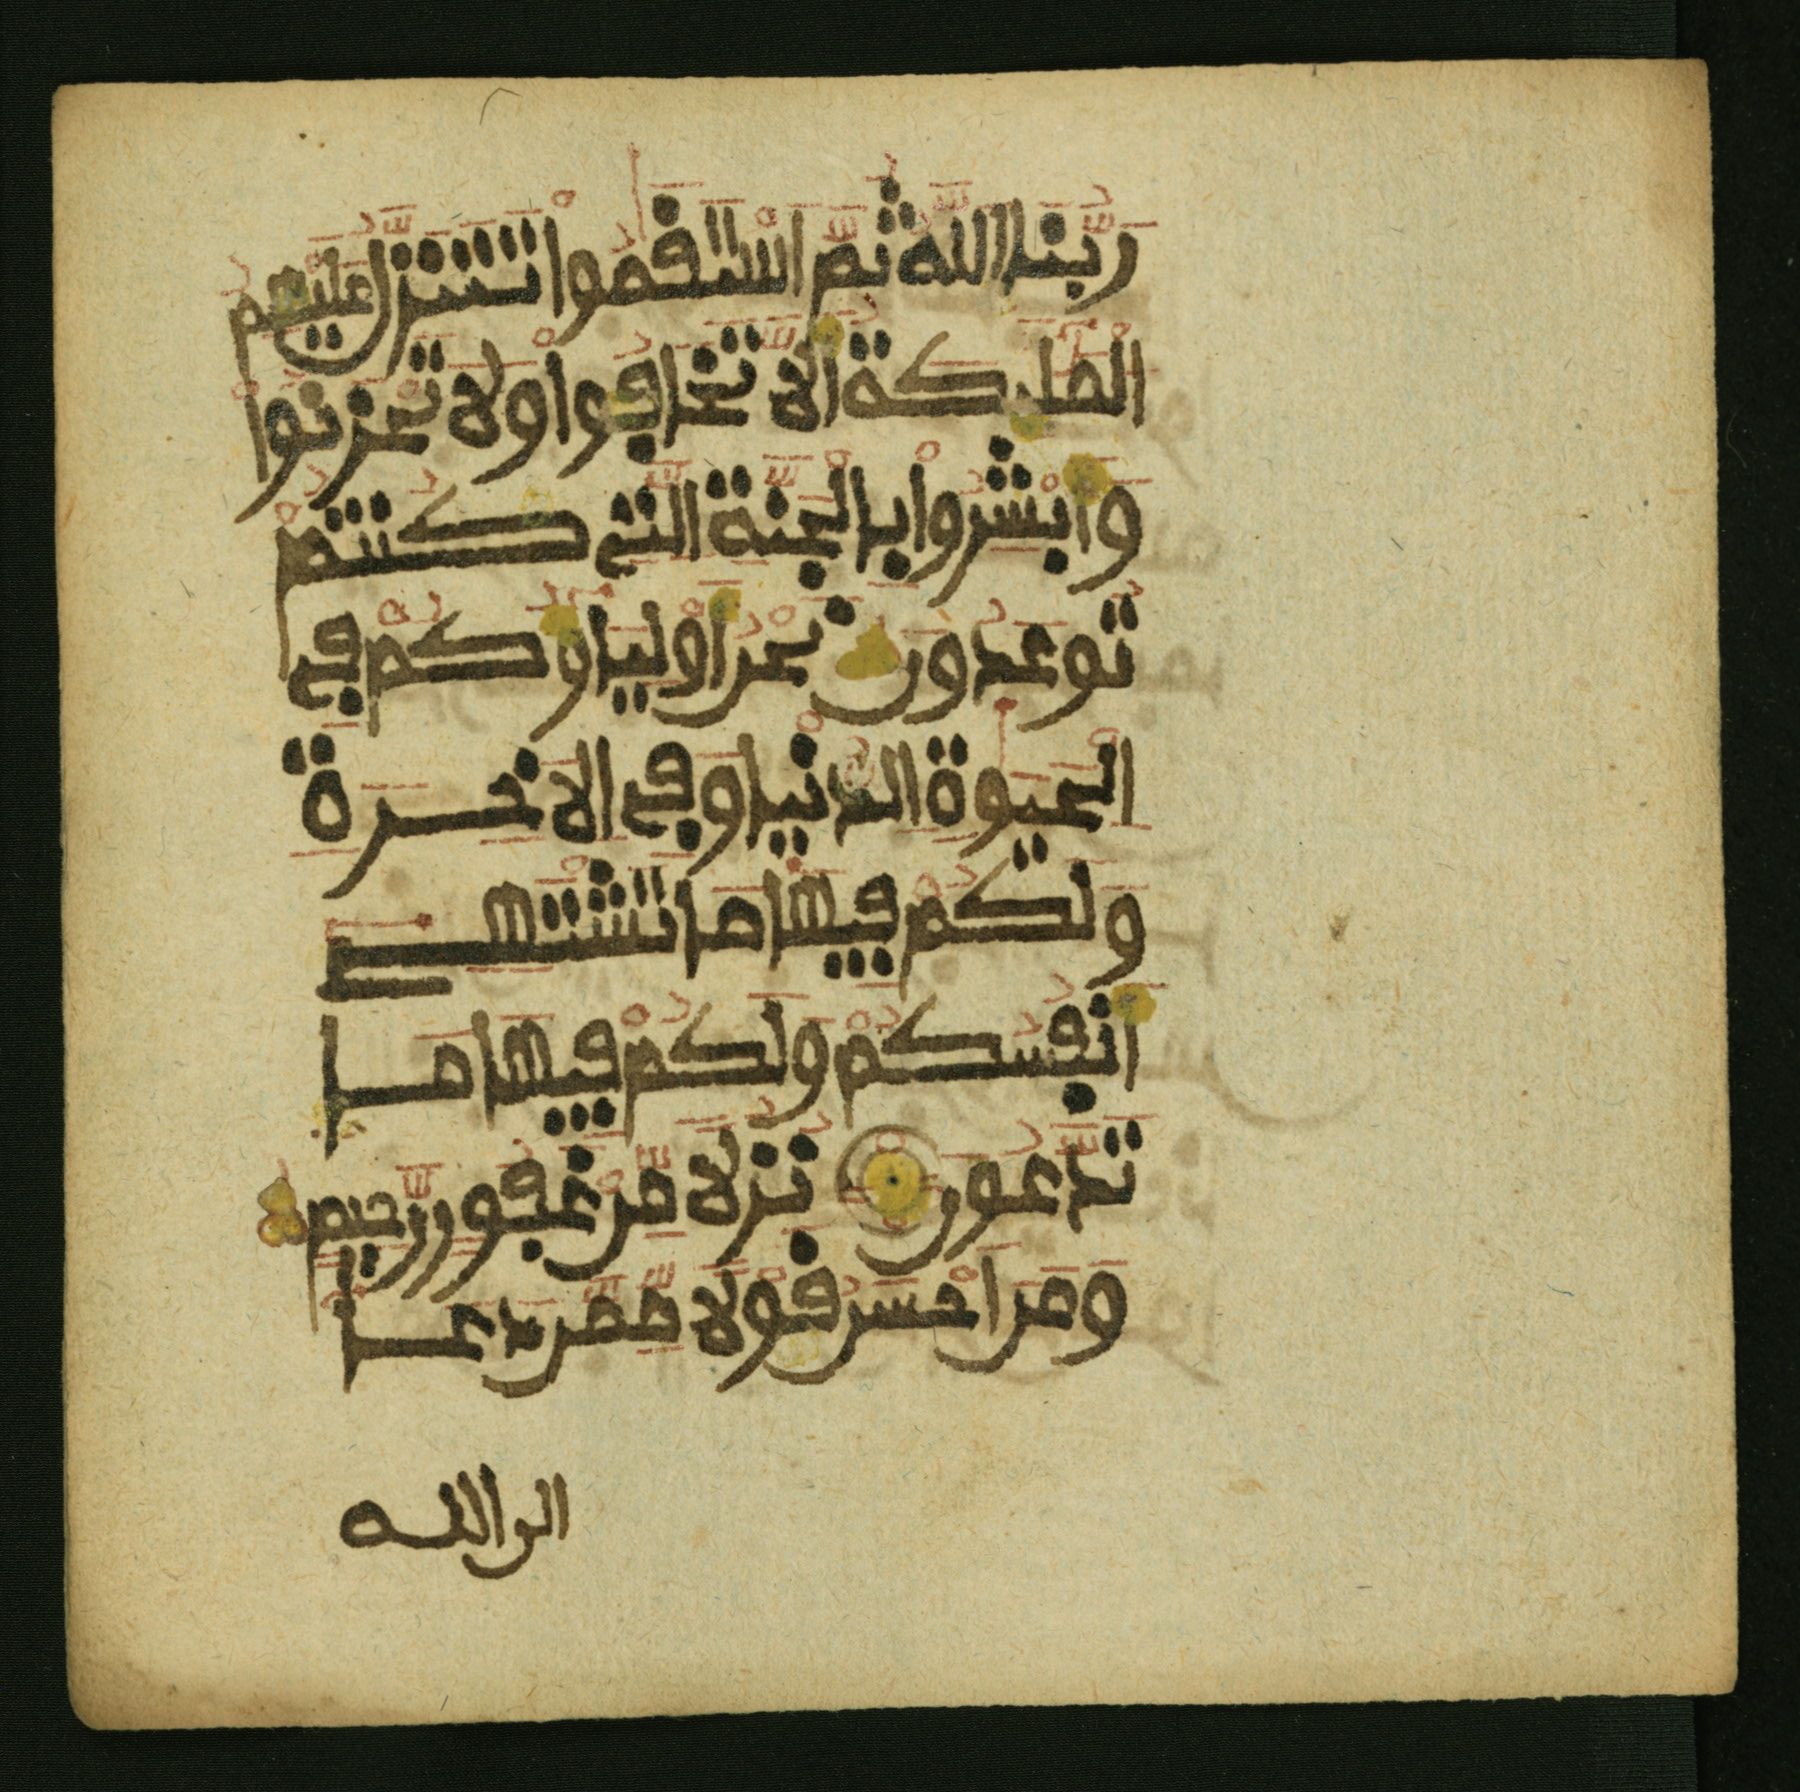 رَبُّنَا اللَّهُ ثُمَّ اسْتَقَٰمُوا تَتَنَزَّلُ عَلَيْهِمُ
الْمَلَٰٓئِكَةُ أَلَّا تَخَافُوا وَلَا تَحْزَنُوا
وَأَبْشِرُوا بِالْجَنَّةِ الَّتِي كُنتُمْ
تُوعَدُونَ نَحْنُ أَوْلِيَاؤُكُمْ فِي
الْحَيَوٰةِ الدُّنْيَا وَفِي الْأَخِرَةِ
وَلَكُمْ فِيهَا مَا تَشْتَهِي
أَنفُسُكُمْ وَلَكُمْ فِيهَا مَا
تَدَّعُونَ نُزُلًا مِّنْ غَفُورٍ رَّحِيمٍ
وَمَنْ أَحْسَنُ قَوْلًا مِّمَّن دَعَا
الى الله